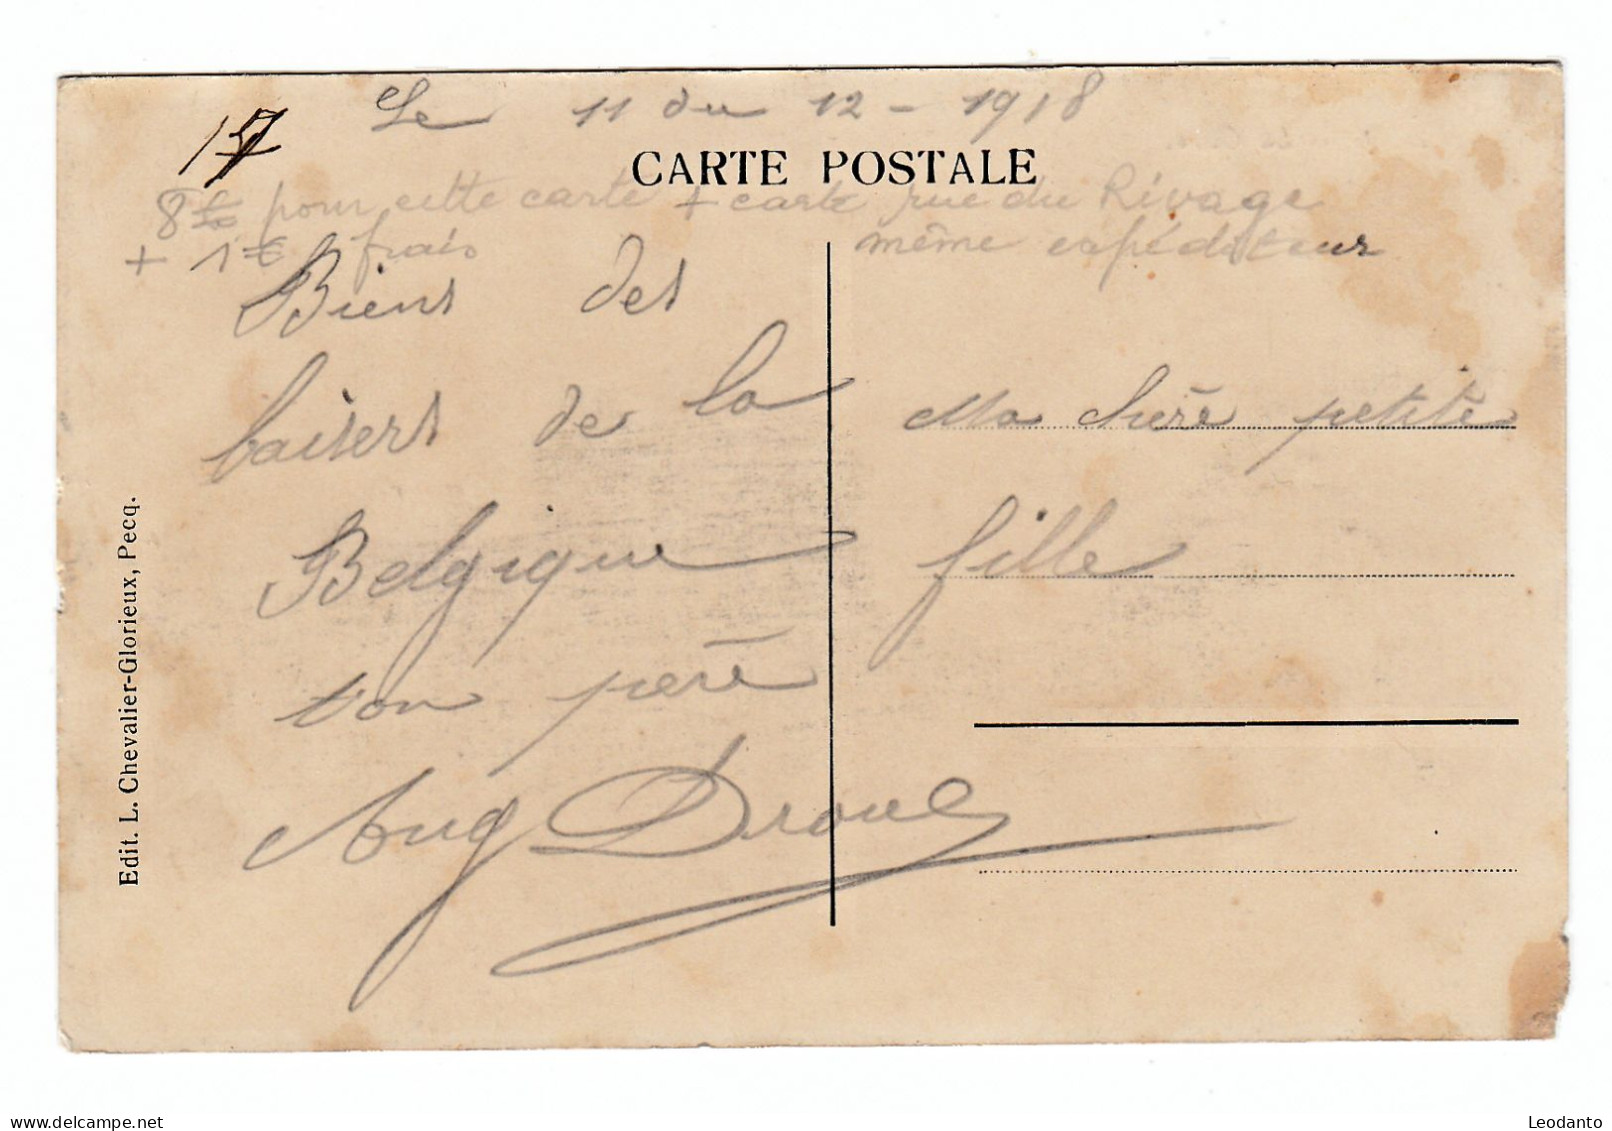 Le 11 du 12 - 1918
17
CARTE POSTALE
8 € pour cette carte + carte rue du Rivage
+ 1 € frais même expéditeur
Biens des
baisers de la
Belgique
ton père
Aug
Ma chère petite
fille
Edit. L. Chevalier-Glorieux, Pecq.
delcampe.net
Leodanto